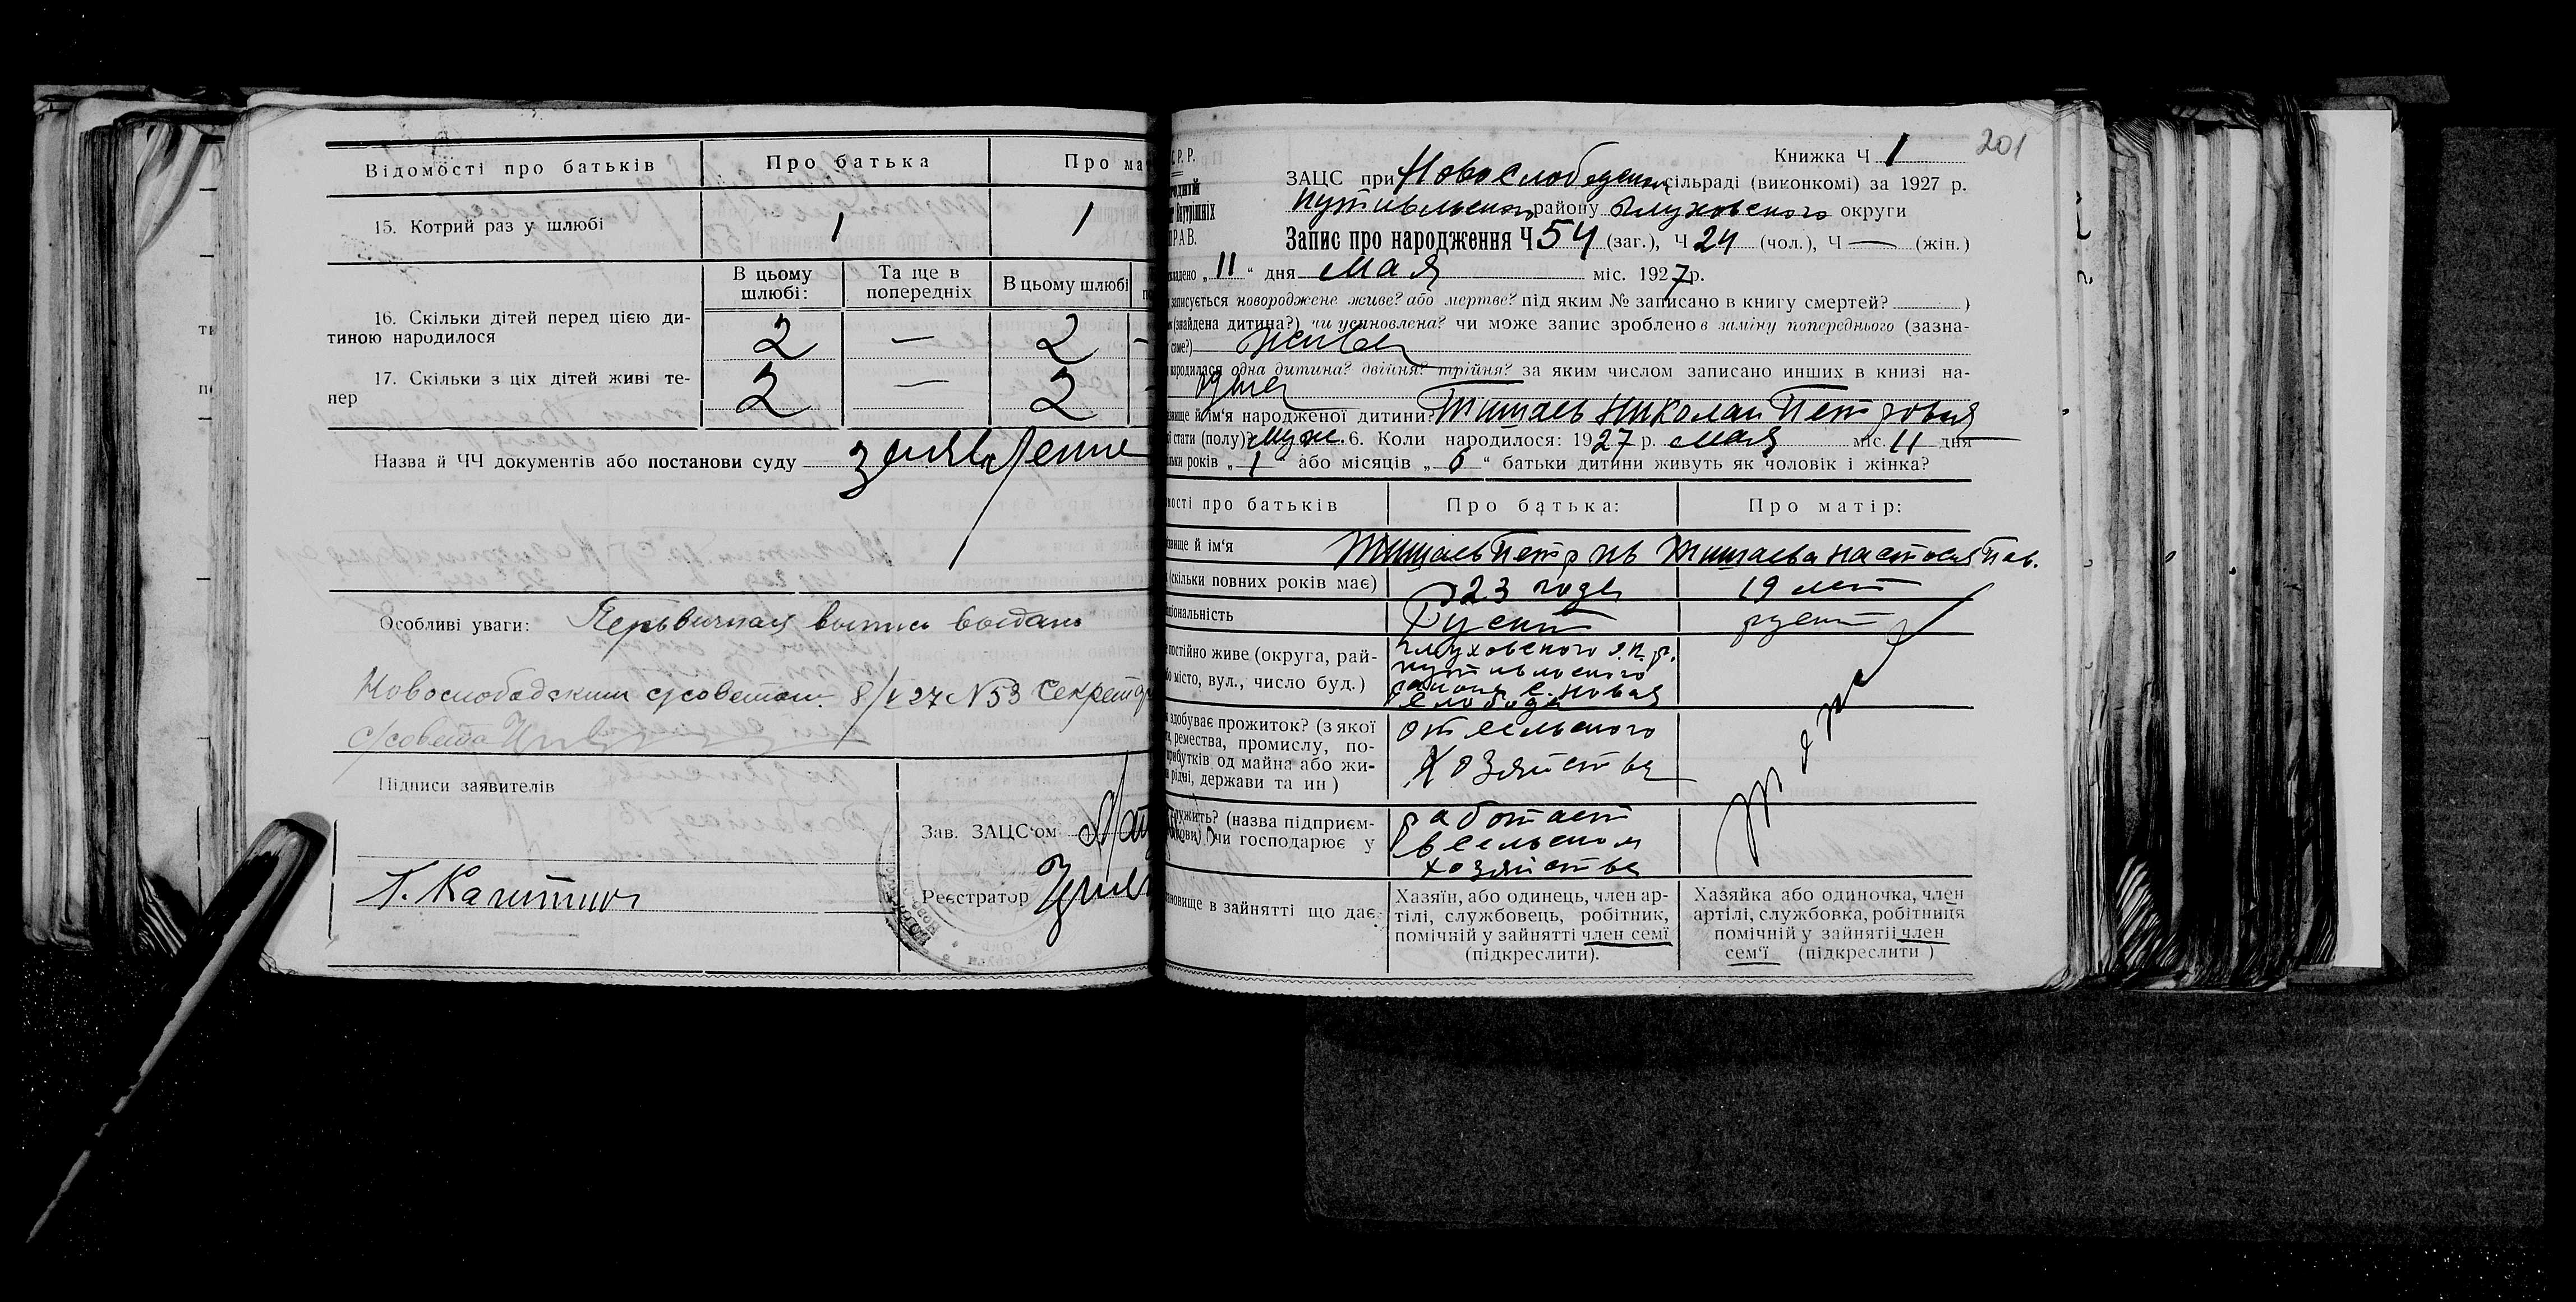 Відомості про батьків Про батька Про ма
15. Котрий раз у шлюбі 1 1
В цьому шлюбі: Та ще в попередніх В цьому шлюбі
16. Скільки дітей перед цією ди-
тиною народилося 2 — 2 —
17. Скільки з ціх дітей живі те-
пер 2 — 2 —
Назва й ЧЧ документів або постанови суду заявление
Особливі уваги: Первичная выпись выдана
Новослободским с/советом 8/V 27 N53 Секретар
с/совета
Підписи заявителів
Зав. ЗАЦС'ом
Реєстратор
201
Р. Р. Книжка Ч 1
ЗАЦС при Новослободском сільраді (виконкомі) за 1927 р.
Внутрішніх Путивльского району Глуховского округи
ПРАВ. Запис про народження Ч 54 (заг.), Ч 24 (чол.), Ч — (жін.)
„ 11 “ дня мая міс. 1927 р.
записується новороджене живе? або мертве? під яким № записано в книгу смертей? )
(знайдена дитина?) чи усиновлена? чи може запис зроблено в заміну попереднього (зазна-
саме?) живой
народилася одна дитина? двійня? трійня? за яким числом записано инших в книзі на-
одна
й ім'я народженої дитини? Тимаев Николай Петрович
стати (полу)? муж. 6. Коли народилося: 1927 р. мая міс. 11 дня
років „ 1 “ або місяців „ 6 “ батьки дитини живуть як чоловік і жінка?
про батьків Про батька: Про матір:
й ім'я Петр Настасия Пав.
(скільки повних років має) 23 года 19 лет
Русский русск
постійно живе (округа, рай- Глуховского
місто, вул., число буд.) Путивльского
района с. Новая
Слобода
здобуває прожиток? (з якої от сельского
ремества, промислу, по- хозяйства
од майна або жи-
рідні, держави та ин)
служить? (назва підприєм- работает
чи господарює у в сельском
хозяйстве
в зайнятті що дає:
Хазяїн, або одинець, член ар-
тілі, службовець, робітник,
помічній у зайнятті член семї
(підкреслити).
Хазяйка або одиночка, член
артілі, службовка, робітниця
помічній у зайнятіі член
сем'ї (підкреслити)